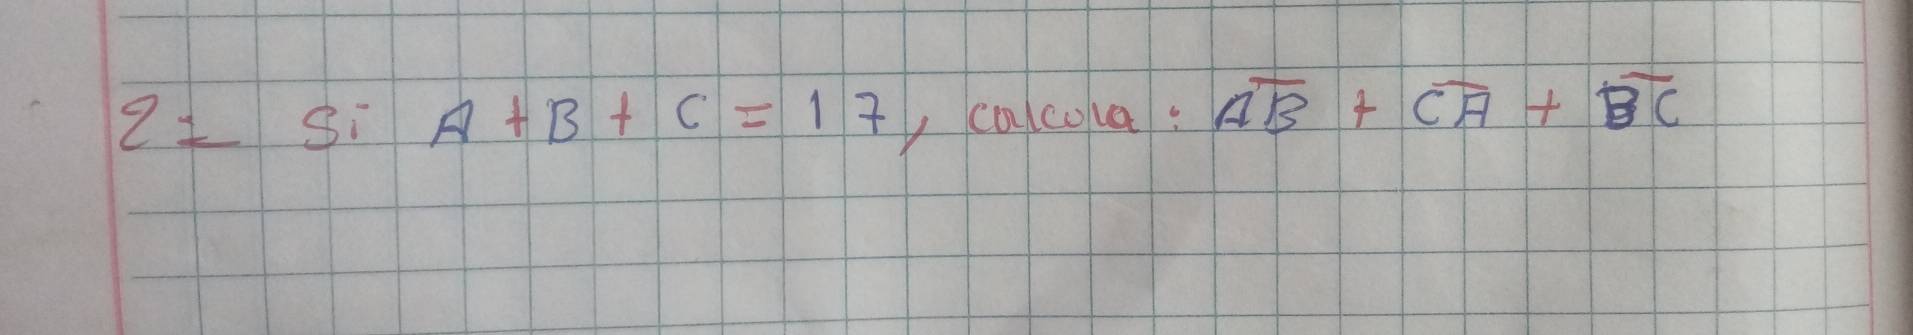 2= Si A + B + C = 17, calcula: A̅B̅ + C̅A̅ + B̅C̅